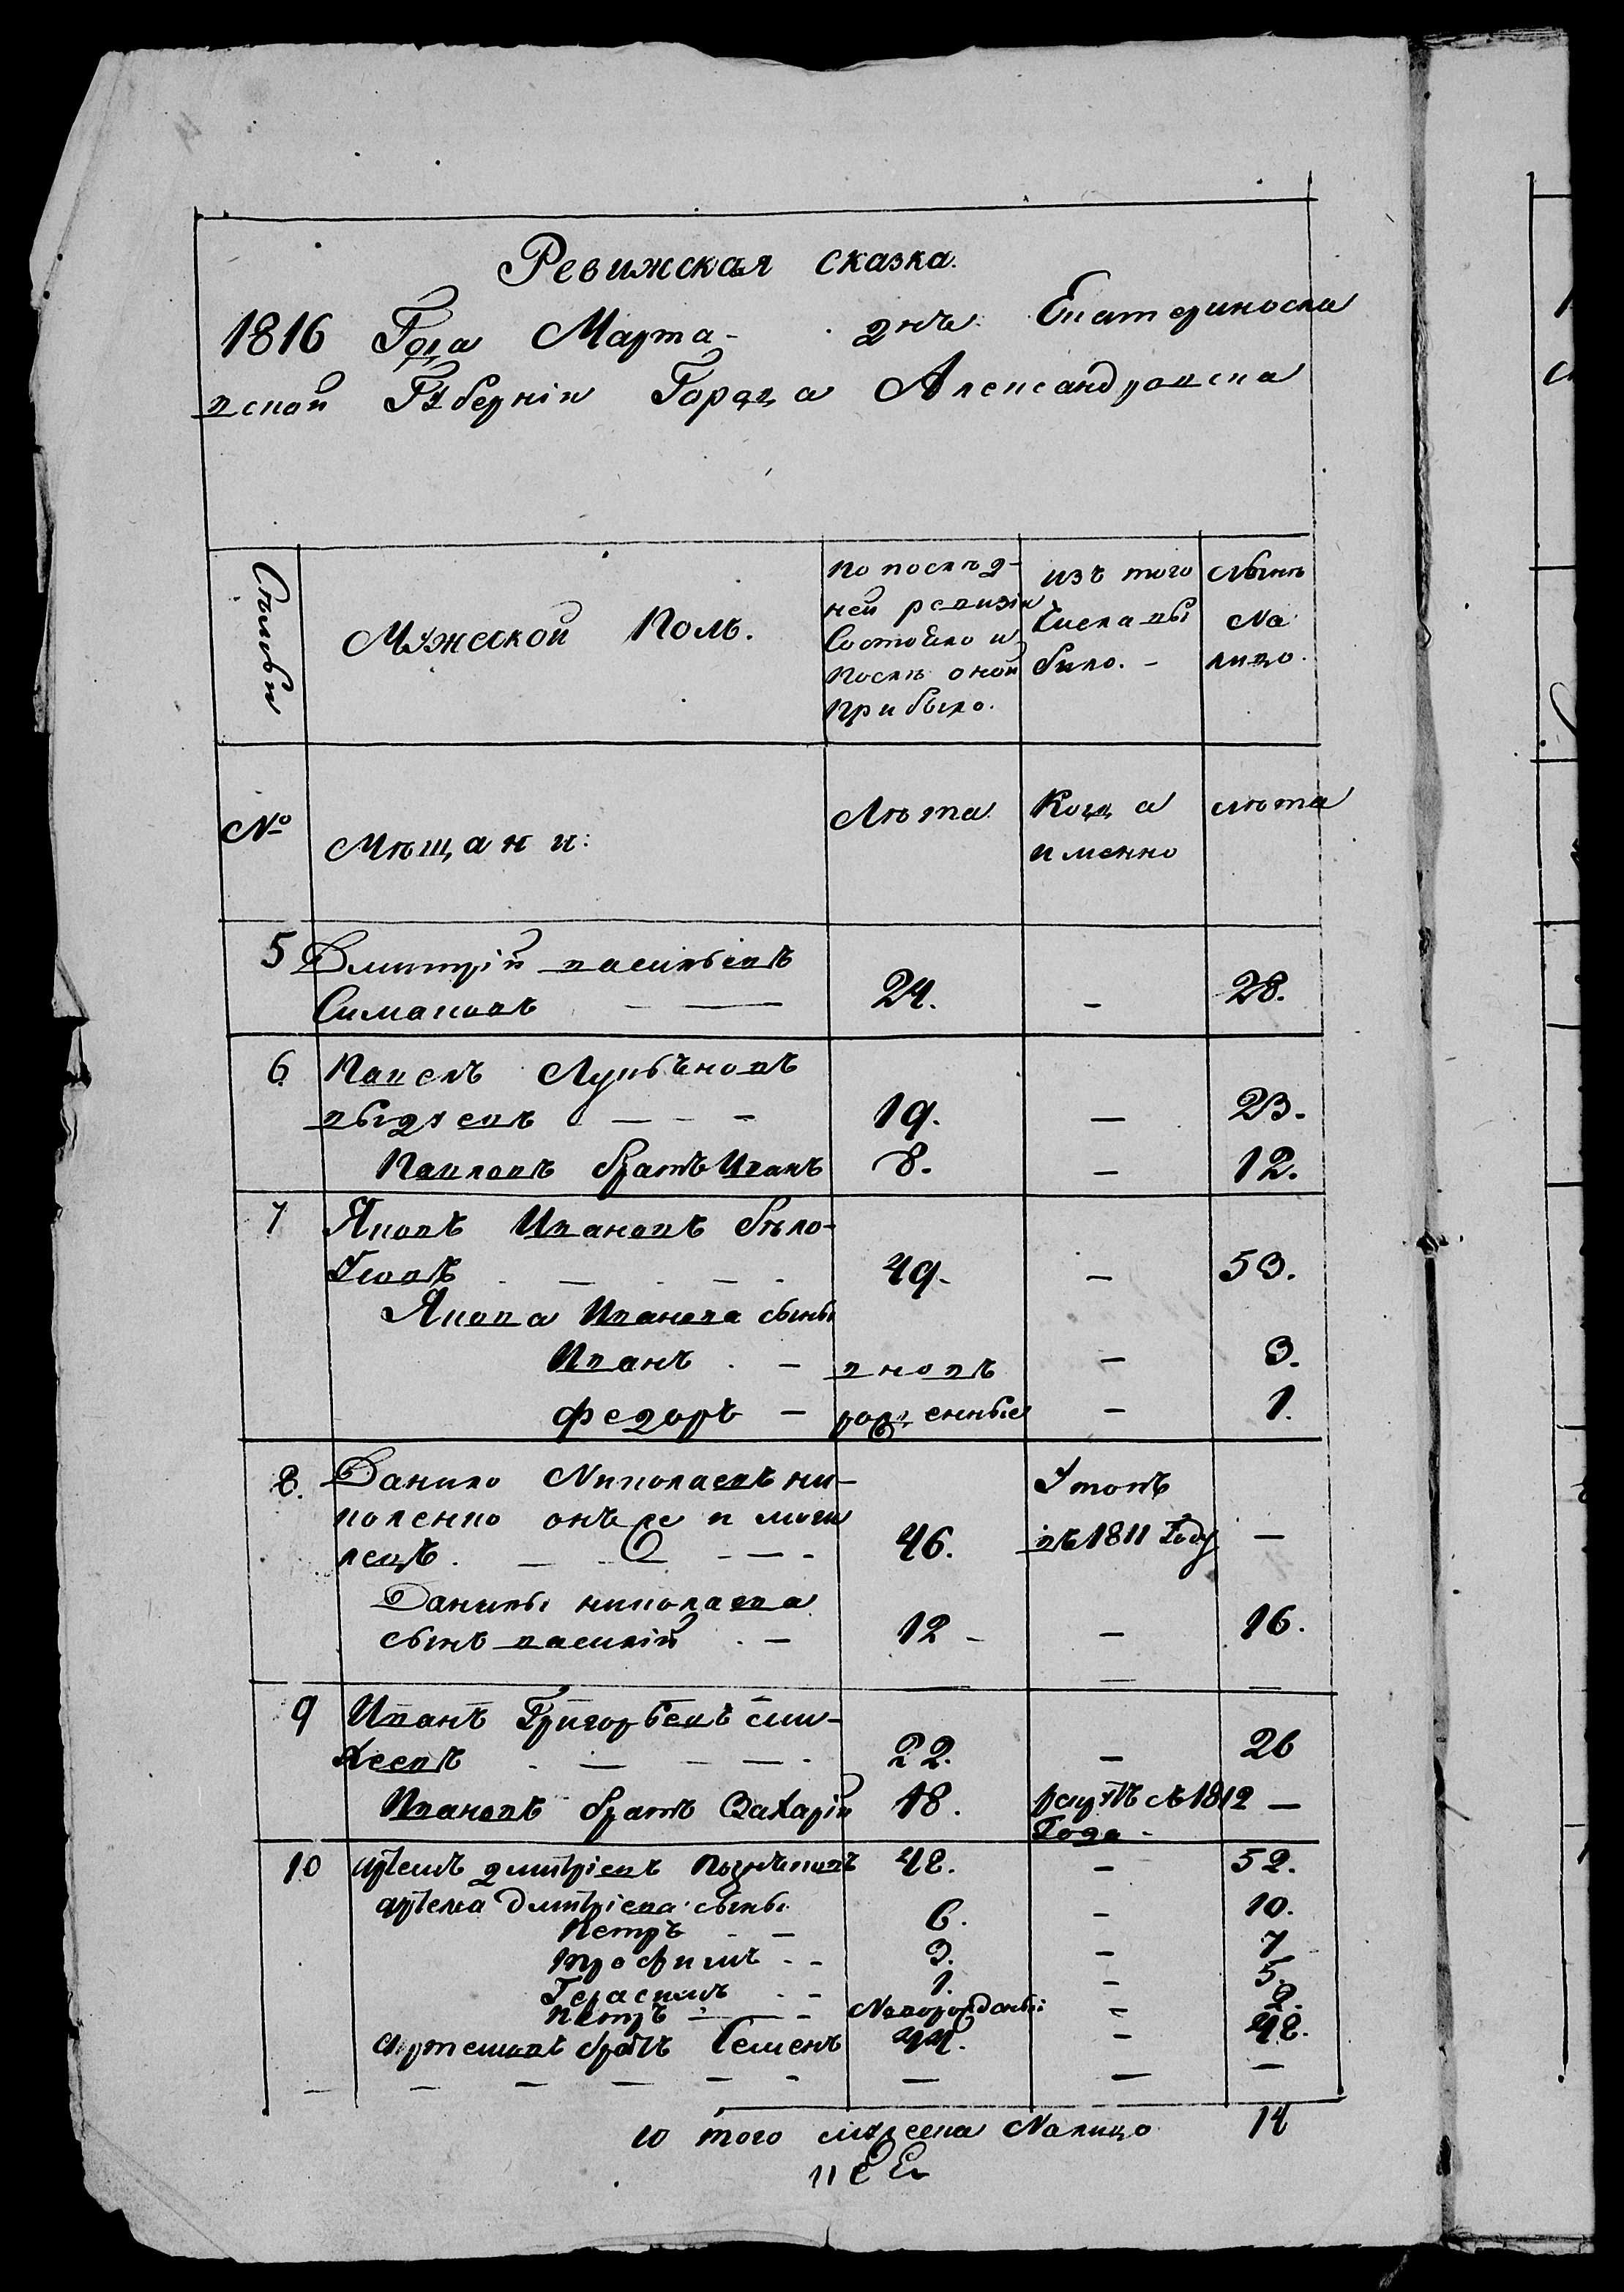 Ревижская сказка.
1816 Года Марта - дня: Екатериносла
вской Губерніи Города Александровска
Семьи
Мужеской Полъ.
по послѣд-
ней ревизіи
Состояло и
послѣ оной
прибыло.
изъ того
Числа вы
было. -
нынѣ
На
лицо.
№
Мѣщани:
Лѣта
Когда
именно
лѣта
5 Дмитрій васильевъ
Симановъ — 24. - 28.
6 Павелъ Лукьяновъ
— — - 19. — 23.
Павловъ братъ Иванъ 8. - 12.
7 Яковъ Ивановъ бѣло-
усовъ - — - — - 49. - 53.
Якова Иванова сыны
Иванъ . - вновь - 3.
Федоръ - рожденные - 1.
8. Данило Николаевъ ни-
коленко онъ же и моги
левъ . — — - — - 46. Утопъ въ 1811 Году —
Данилы николаева
сынъ василій . - 12 - - 16.
9 Иванъ Григорьевъ сми-
- — - — . 22. - 26
Ивановъ братъ Захарій 18. съ 1812 —
Года -
10 артемъ дмитріевъ 48. - 52.
артема дмитріева сыны
Петръ - — 6. - 10.
трофимъ - - 3. - 7
Герасимъ - - 1. - 5.
Петръ — - Новорожденый - 2.
артемовъ братъ Семенъ 44. - 48.
— — — — - - — — —
Итого мужеска Налицо 14